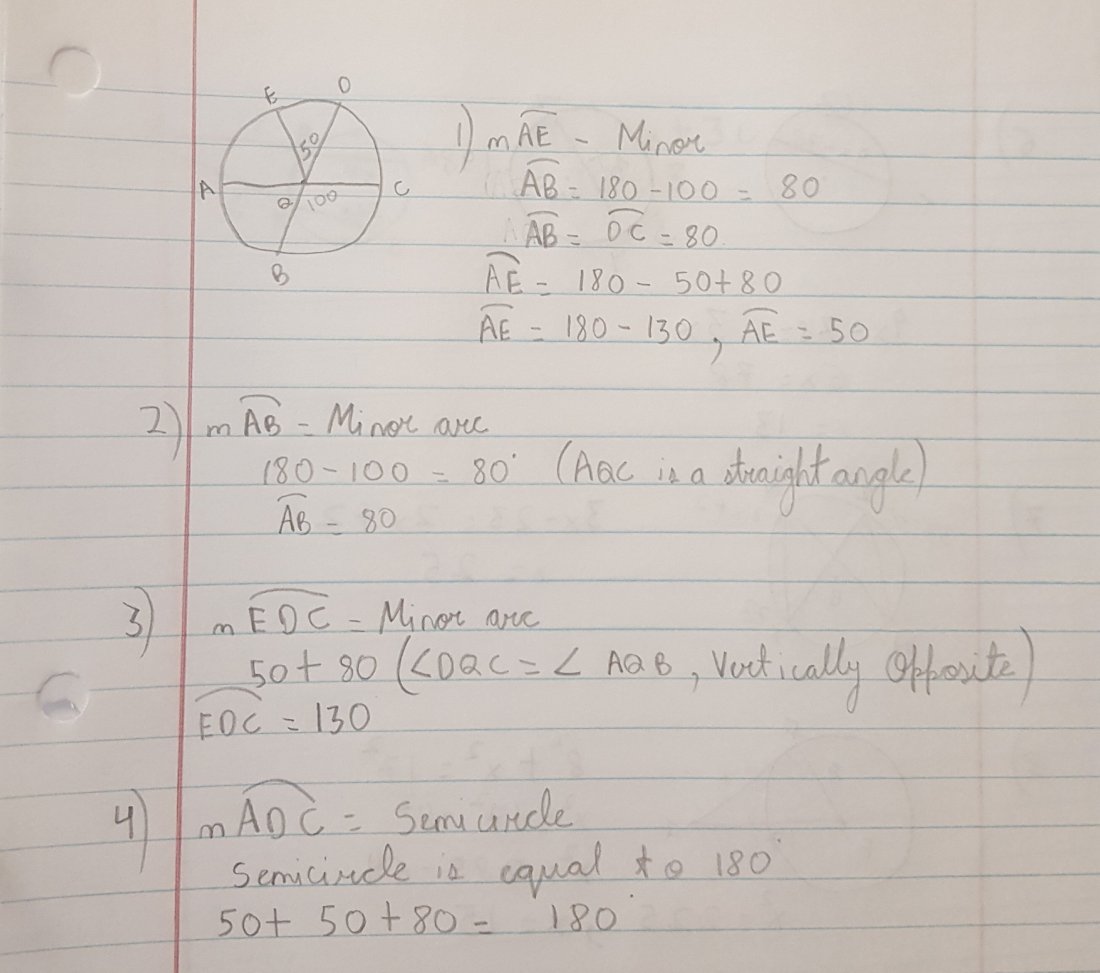 E D
50
A C
Q 100
B
1) mAE - Minor
AB = 180 - 100 = 80
AB = DC = 80
AE = 180 - 50 + 80
AE = 180 - 130, AE = 50
2) mAB - Minor arc
180 - 100 = 80° (AQC is a straight angle)
AB = 80
3) mEDC = Minor arc
50 + 80 (∠DQC = ∠ AQB, Vertically Opposite)
EDC = 130
4) mADC = Semicircle
Semicircle is equal to 180°
50 + 50 + 80 = 180°